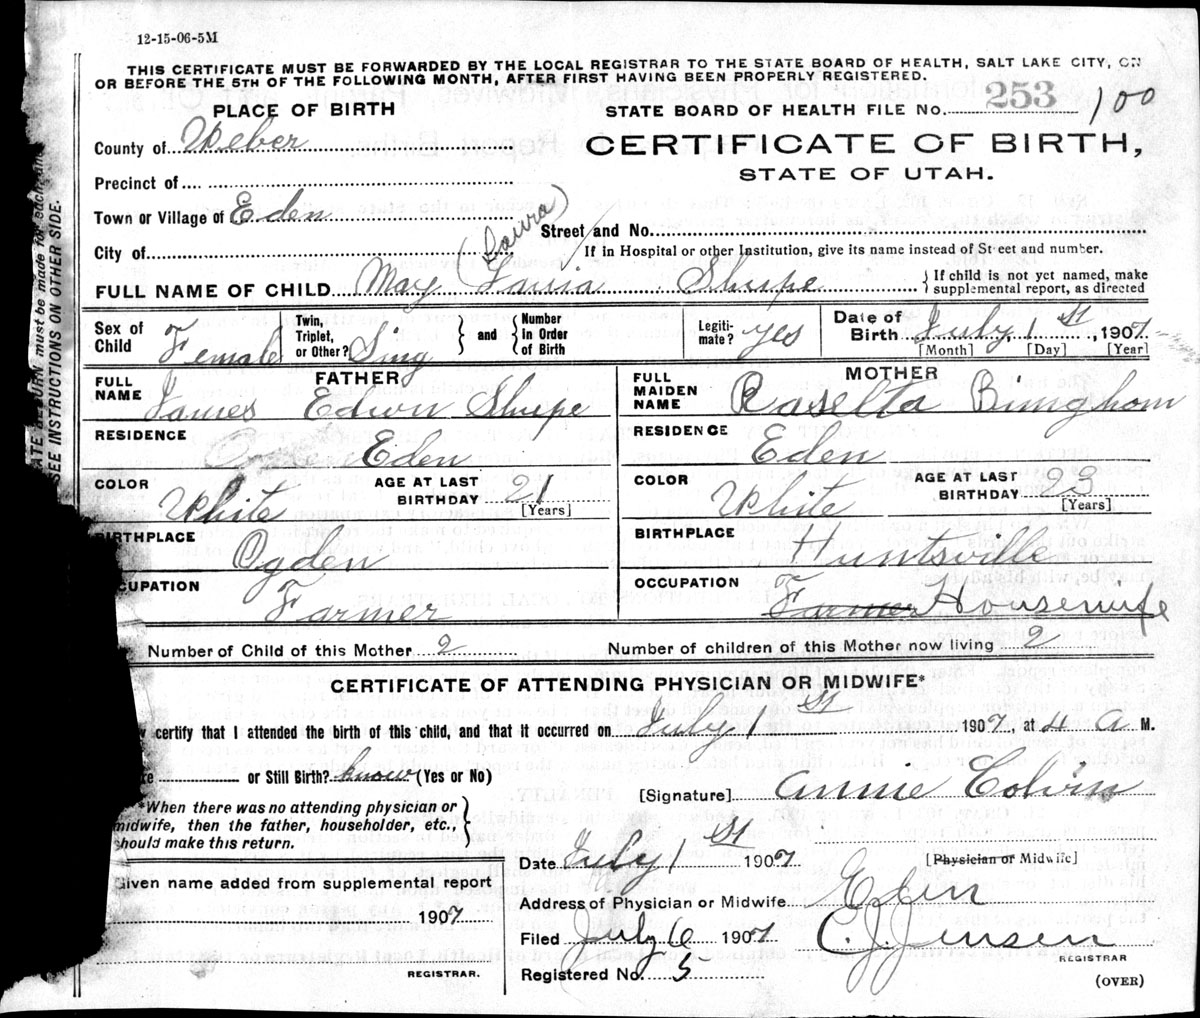 12-15-06-5M
THIS CERTIFICATE MUST BE FORWARDED BY THE LOCAL REGISTRAR TO THE STATE BOARD OF HEALTH, SALT LAKE CITY, ON
OR BEFORE THE 5TH OF THE FOLLOWING MONTH, AFTER FIRST HAVING BEEN PROPERLY REGISTERED.
PLACE OF BIRTH
STATE BOARD OF HEALTH FILE No. 253 100
County of Weber
CERTIFICATE OF BIRTH,
STATE OF UTAH.
Precinct of
Town or Village of Eden
(Laura)
Street and No.
City of
If in Hospital or other Institution, give its name instead of Street and number.
FULL NAME OF CHILD May Lauria Shupe
If child is not yet named, make
supplemental report, as directed
Sex of Child Female
Twin, Triplet, or Other? Sing
and
Number in Order of Birth
Legiti-mate? yes
Date of Birth July, 1 St, 1907
[Month] [Day] [Year]
FATHER
FULL NAME James Edwin Shupe
MOTHER
FULL MAIDEN NAME Rasella Bingham
RESIDENCE Eden
RESIDENCE Eden
COLOR White
AGE AT LAST BIRTHDAY 21 [Years]
COLOR White
AGE AT LAST BIRTHDAY 23 [Years]
BIRTHPLACE Ogden
BIRTHPLACE Huntsville
CUPATION Farmer
OCCUPATION Farmer Housewife
Number of Child of this Mother 2
Number of children of this Mother now living 2
CERTIFICATE OF ATTENDING PHYSICIAN OR MIDWIFE*
certify that I attended the birth of this child, and that it occurred on July 1 St 1907, at 4 a M.
or Still Birth? know (Yes or No)
[Signature] annie Colvin
*When there was no attending physician or
midwife, then the father, householder, etc.,
should make this return.
Date July 1 St 1907
[Physician or Midwife]
Given name added from supplemental report
1907
REGISTRAR.
Address of Physician or Midwife Eden
Filed July 6 1907 C. J. Jensen
REGISTRAR
Registered No. 5
(OVER)
SEE INSTRUCTIONS ON OTHER SIDE.